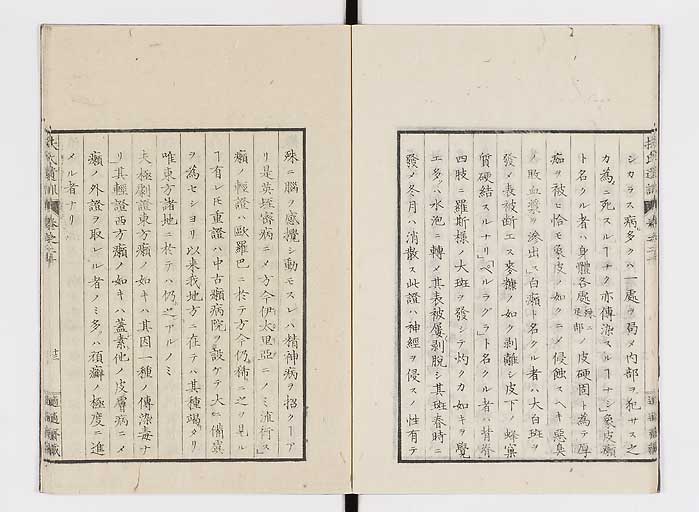 シカラス病多クハ一處ヲ局メ内部ヲ犯サス之
カ為ニ死スルヿナク亦傳染スルヿナシ」象皮癩
ト名クル者ハ身體各處殊ニ足部ノ皮硬固ト為テ厚
痂ヲ被ヒ恰モ象皮ノ如クニメ侵蝕スヘキ惡臭
ノ敗血漿ヲ滲出ス」白癩ト名クル者ハ大白斑ヲ
發メ表被断エス麥糠ノ如ク剥離シ皮下ノ蜂窠
質硬結スルナリ」「ペルラグラ」ト名クル者ハ背脊
四肢ニ羅斯様ノ大斑ヲ發シテ灼クカ如キヲ覺
エ多クハ水泡ニ轉メ其表被屢剥脱シ其斑春時ニ
發メ冬月ハ消散ス此證ハ神經ヲ侵スノ性有テ
殊ニ脳ヲ感攪シ動モスレハ精神病ヲ招クーア
リ是英埀審病ニメ方今伊太里亞ニノミ流行ス」
癩ノ輕證ハ歐羅巴ニ於テ方今仍稀ニ之ヲ見ル
ヿ有レ𪜈重證ハ中古癩病院ヲ設ケテ大ニ備禦
ヲ為セシヨリ以来我地方ニ在テハ其種竭タリ
唯東方諸地ニ於テハ仍之アルノミ
夫極劇證東方癩ノ如キハ其因一種ノ傳染毒ナ
リ其輕證西方癩ノ如キハ蓋素他ノ皮膚病ニメ
癩ノ外證ヲ取レル者ノミ多クハ頑癬ノ極度ニ進
メル者ナリ